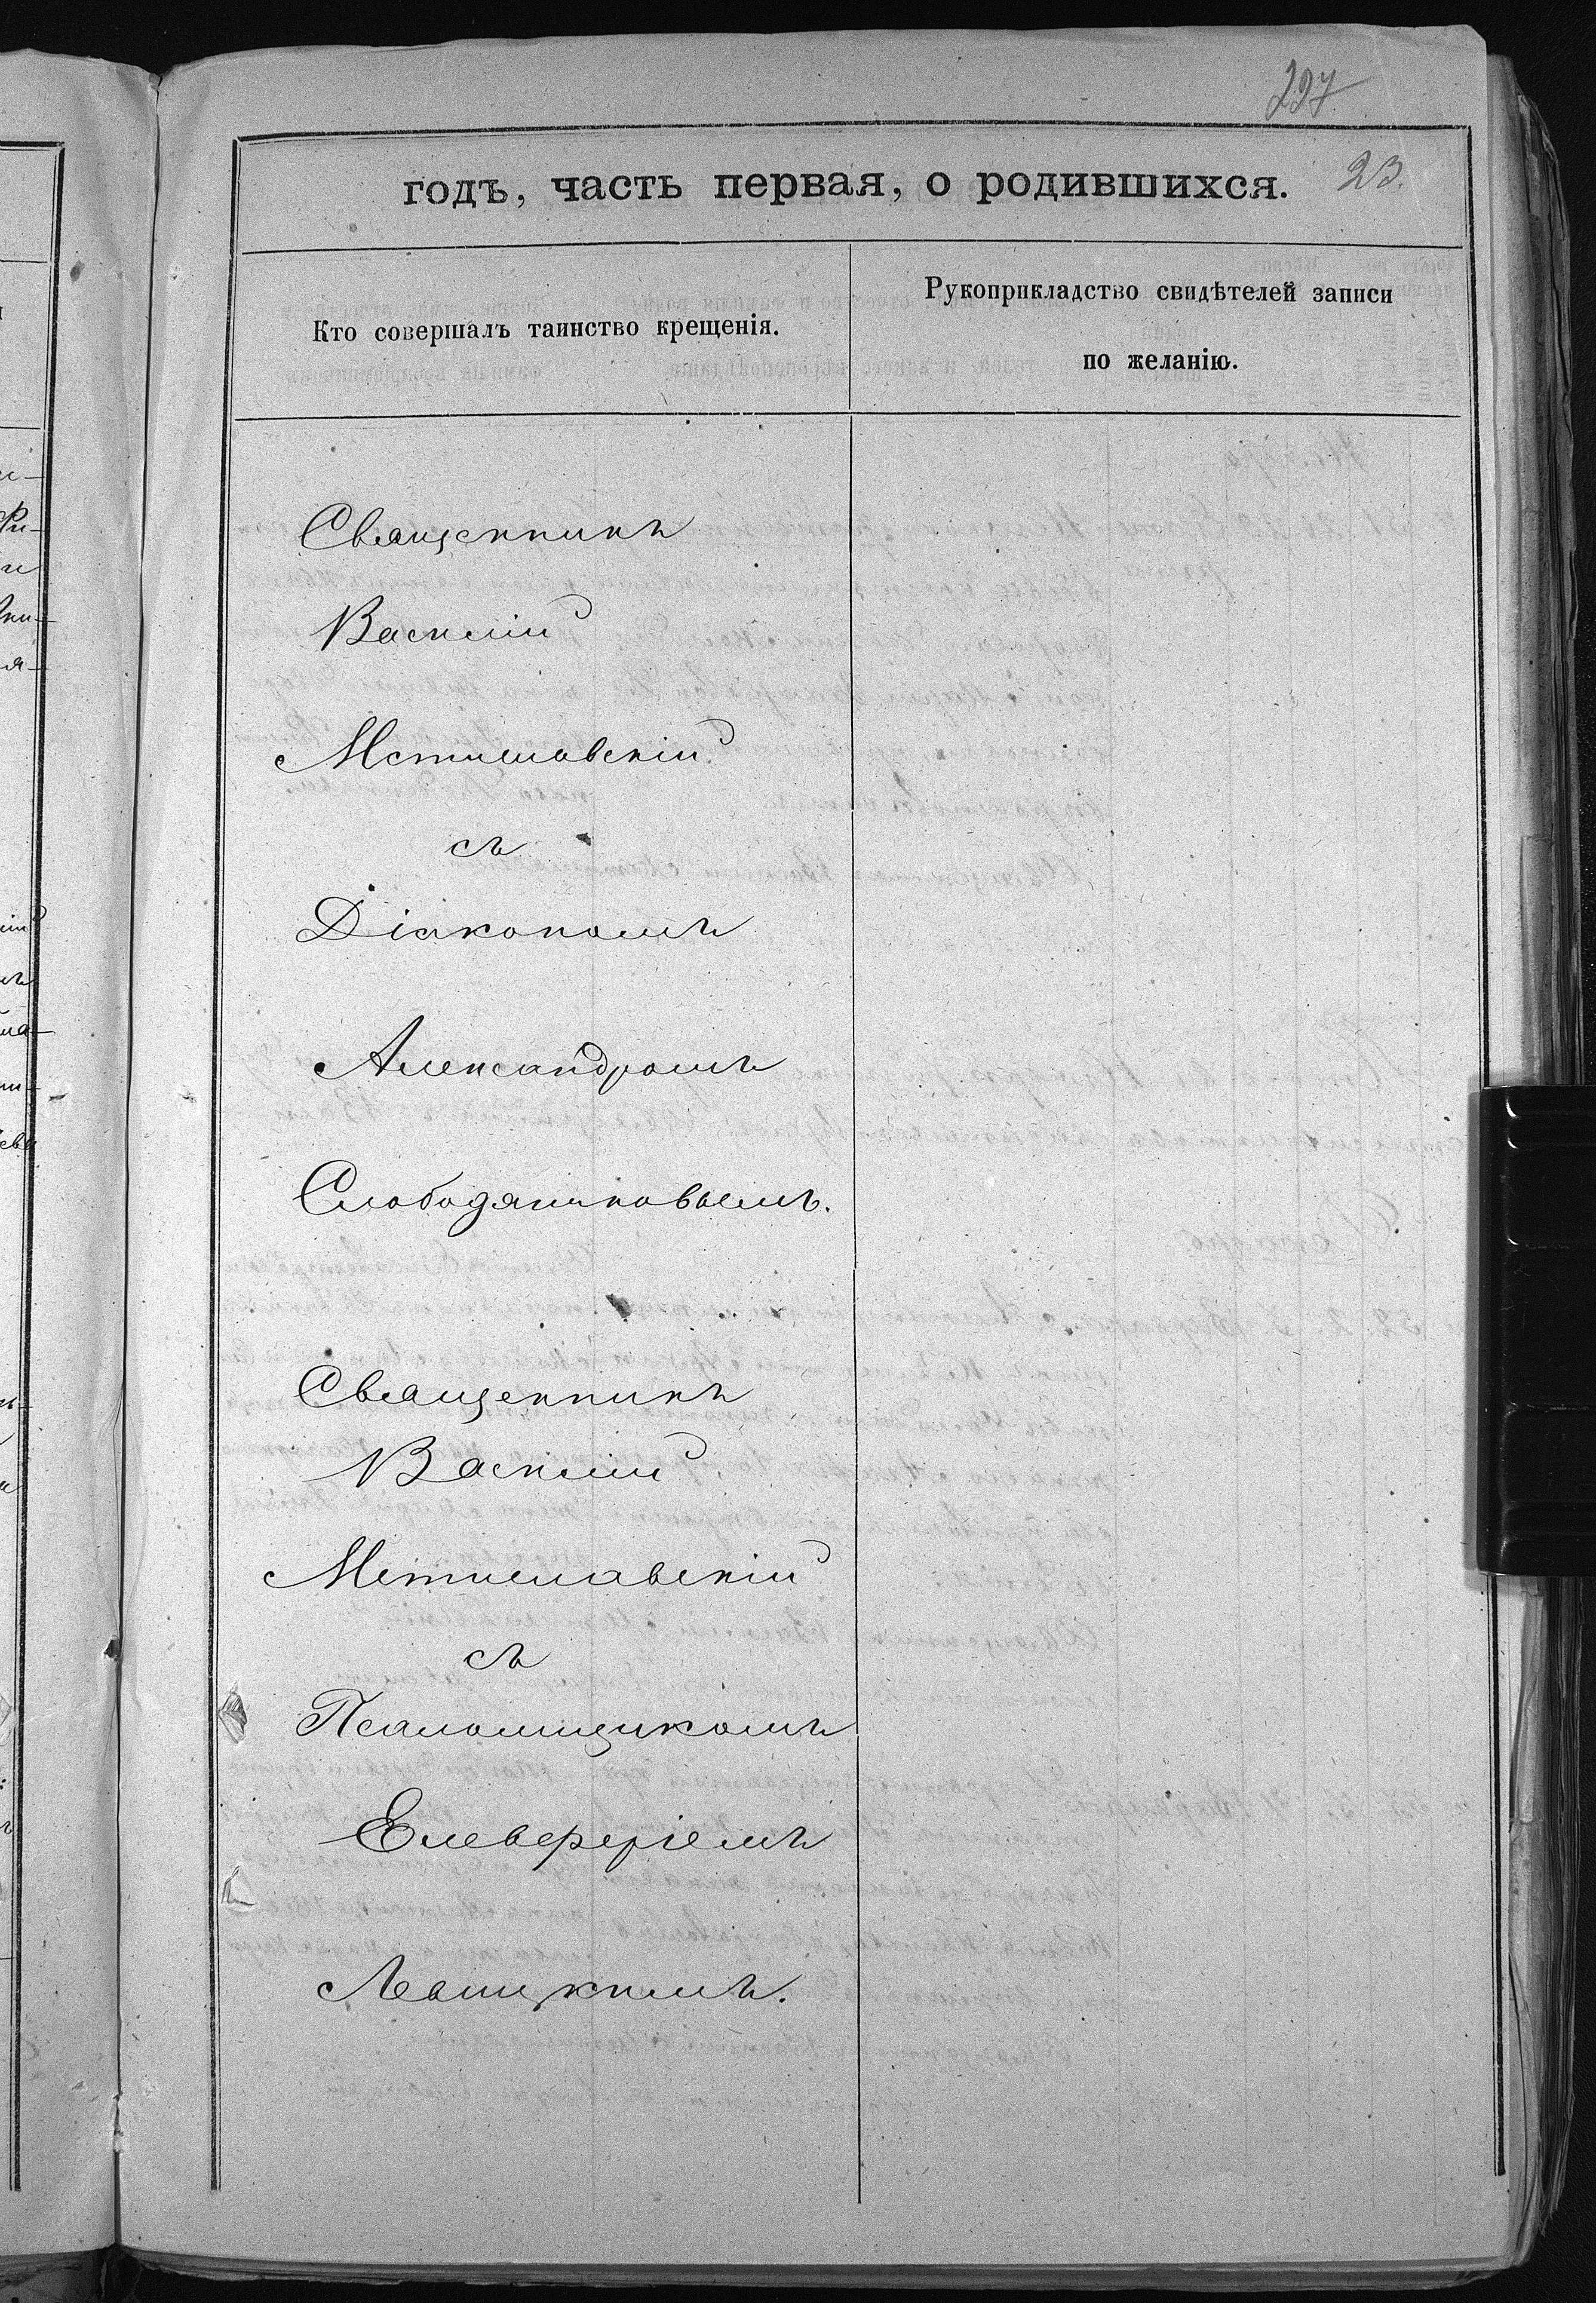 297
годъ, часть первая, о родившихся. 23.
Кто совершалъ таинство крещенія.
Рукоприкладство свидѣтелей записи
по желанію.
Священникъ
Василій
Мстиславскій
съ
Діакономъ
Александромъ
Слободяниковымъ.
Священникъ
Василій
Мстиславскій
съ
Псаломщикомъ
Елеверіемъ
Левицкимъ.